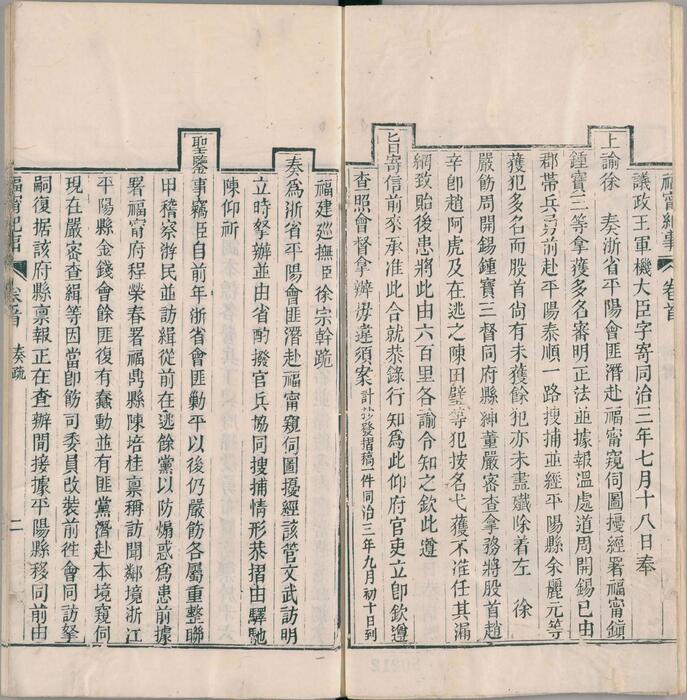 福甯紀事 卷首
議政王軍機大臣字寄同治三年七月十八日奉
上諭徐 奏浙省平陽會匪潛赴福甯窺伺圖擾經署福甯鎮
鍾寶三等拿獲多名審明正法並據報溫處道周開錫已由
郡帶兵勇前赴平陽泰順一路搜捕並經平陽縣余麗元等
獲犯多名而股首尚有未獲餘犯亦未盡殲除着左 徐
嚴飭周開錫鍾寶三督同府縣紳董嚴密查拿務將股首趙
辛卽趙阿虎及在逃之陳田璧等犯按名弋獲不准任其漏
網致貽後患將此由六百里各諭令知之欽此遵
旨寄信前來承准此合就恭錄行知爲此仰府官吏立卽欽遵
查照會督拿辦毋違須案計抄發摺稿一件同治三年九月初十日到
福建廵撫臣徐宗幹跪
奏爲浙省平陽會匪潛赴福甯窺伺圖擾經該管文武訪明
立時拏辦並由省酌撥官兵協同搜捕情形恭摺由驛馳
陳仰祈
聖鑒事竊臣自前年浙省會匪勦平以後仍嚴飭各屬重整聯
甲稽察游民並訪緝從前在逃餘黨以防煽惑爲患前據
署福甯府程榮春署福鼎縣陳培桂稟稱訪聞鄰境浙江
平陽縣金錢會餘匪復有蠢動並有匪黨潛赴本境窺伺
現在嚴密查緝等因當卽飭司委員改裝前徃會同訪拏
嗣復據該府縣稟報正在查辦間接據平陽縣移同前由
福甯紀事 卷首 奏疏 二